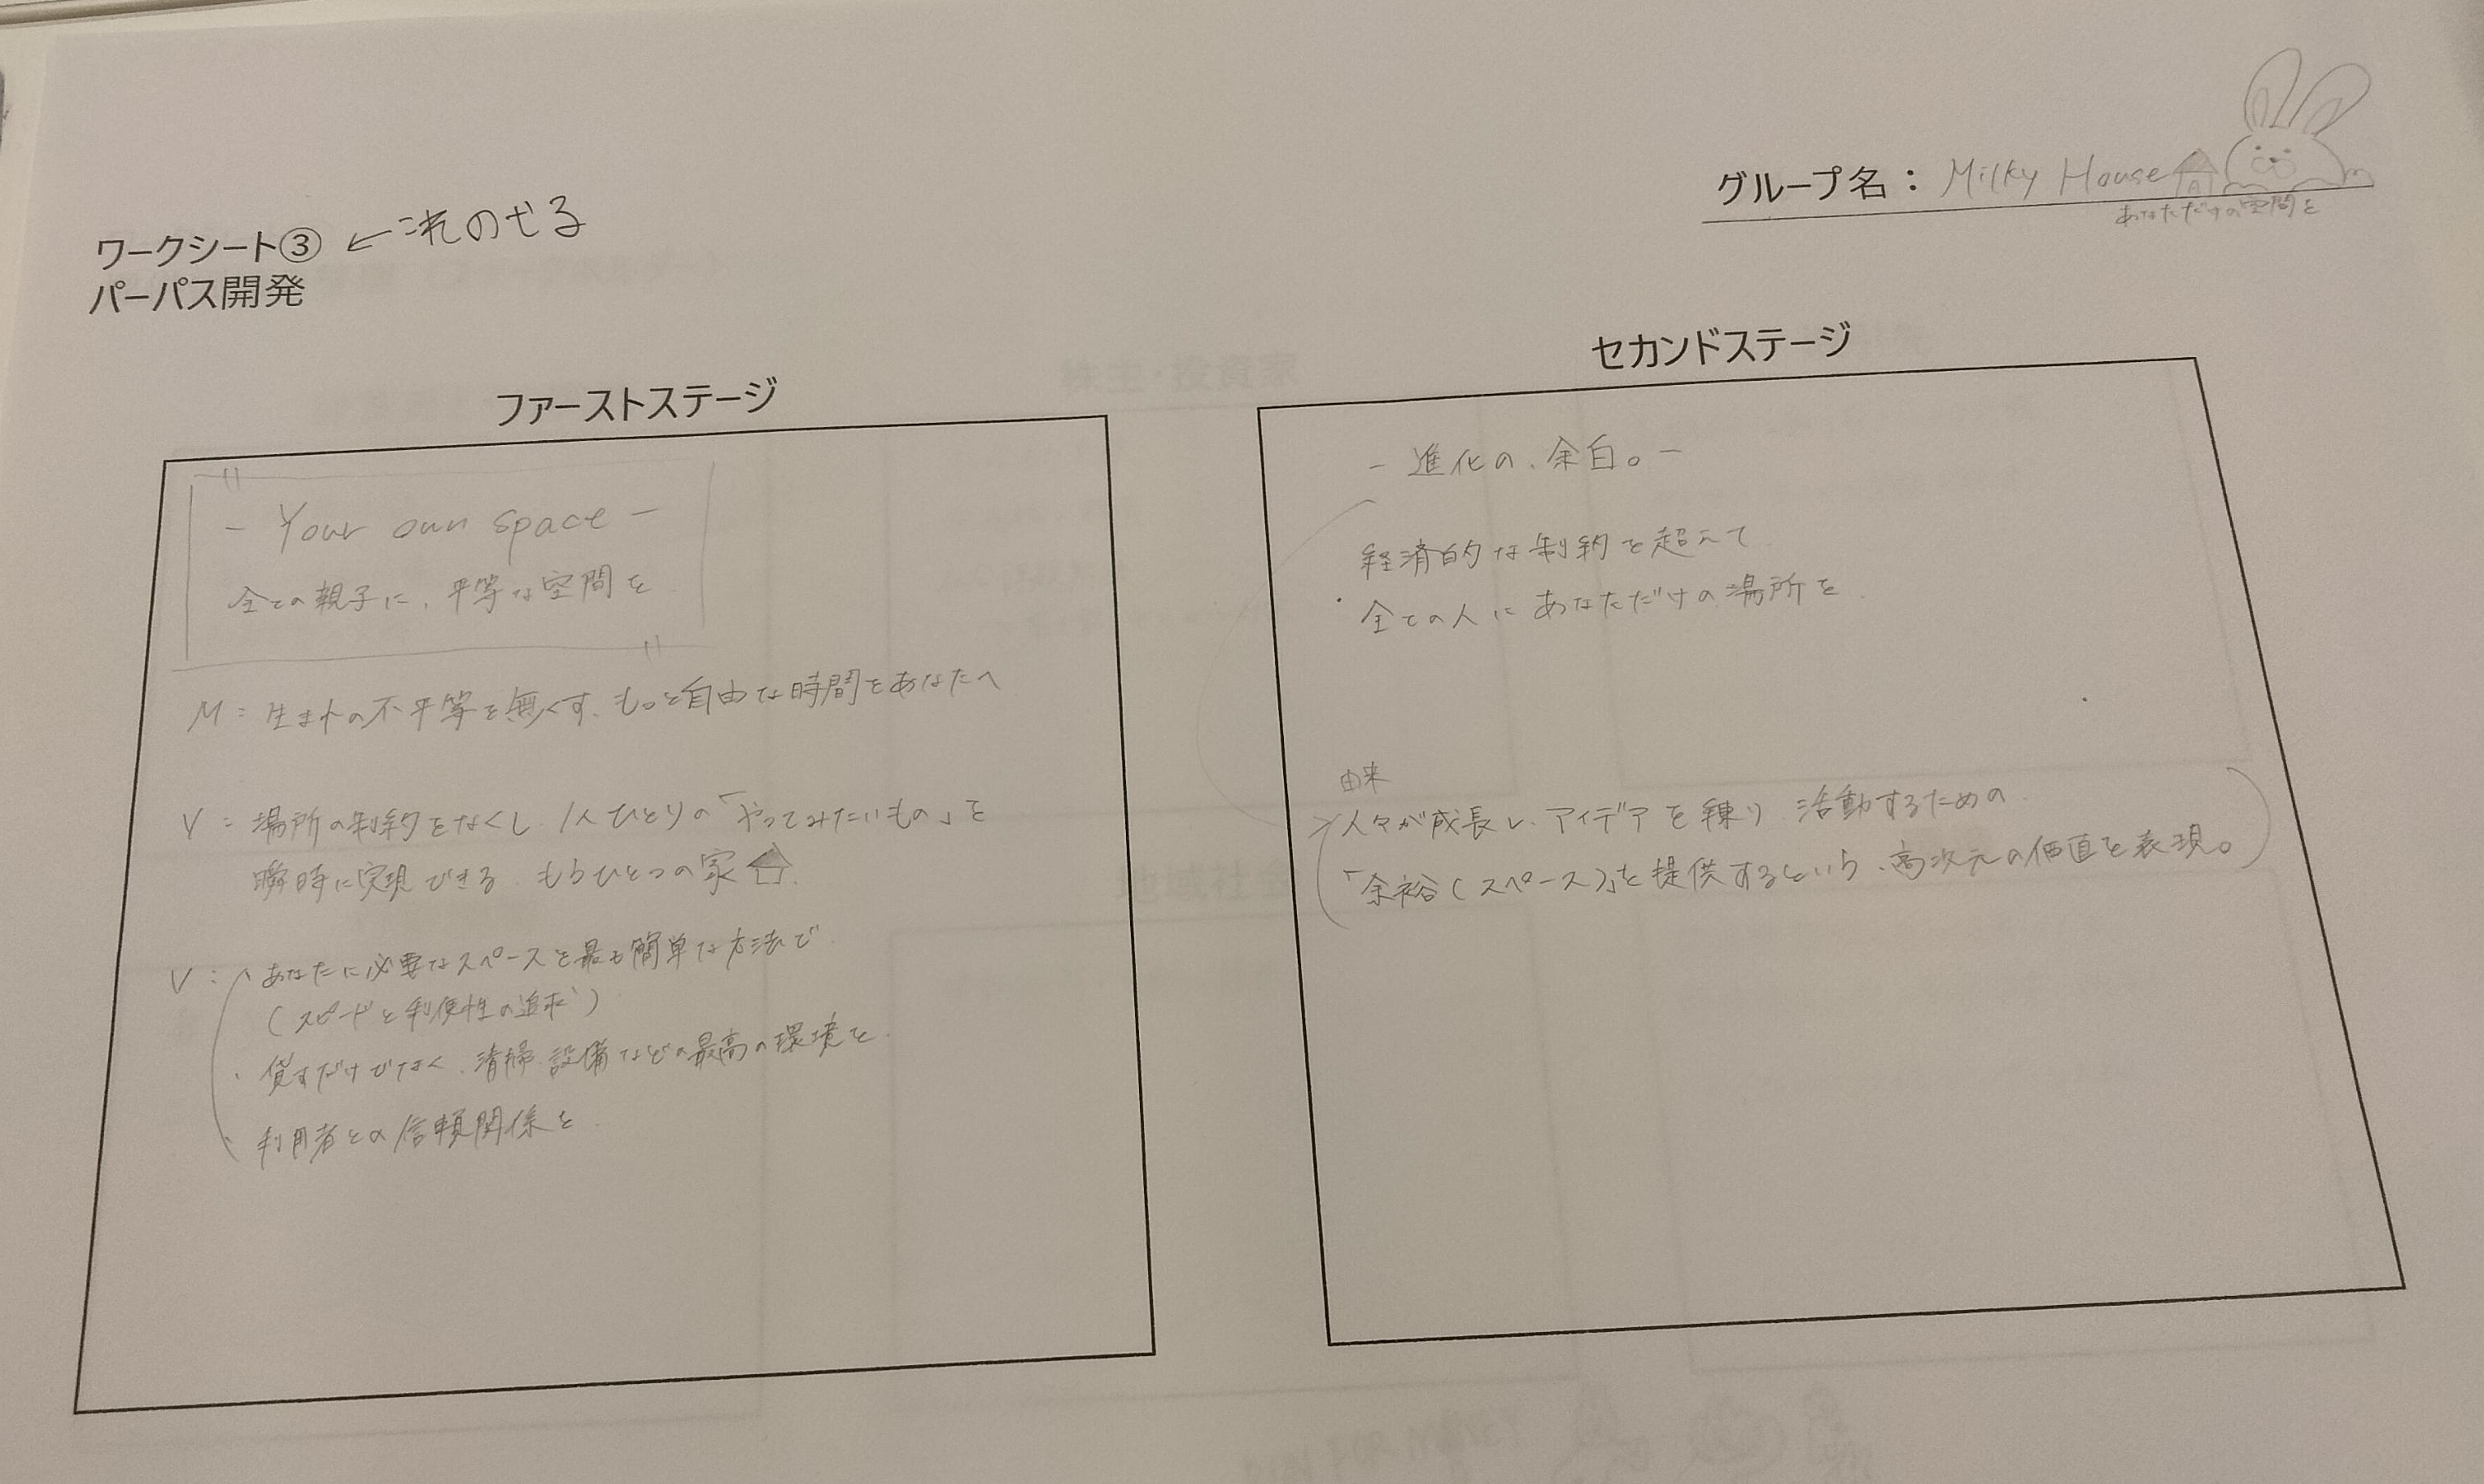 グループ名： Milky House
あなただけの空間を
ワークシート③ ←これのせる
パーパス開発
ファーストステージ
- Your own space -
全ての親子に、平等な空間を
M: 生まれの不平等を無くす、もっと自由な時間をあなたへ
V: 場所の制約をなくし 1人ひとりの「やってみたいもの」を
瞬時に実現できる もうひとつの家
V: ・あなたに必要なスペースを最も簡単な方法で
(スピードと利便性の追求)
・貸すだけでなく、清掃、設備などの最高の環境を
・利用者との信頼関係を
セカンドステージ
- 進化の、余白。-
経済的な制約を超えて
全ての人に あなただけの場所を
由来
人々が成長し、アイデアを練り 活動するための
「余裕(スペース)」を提供するという、高次元の価値を表現。